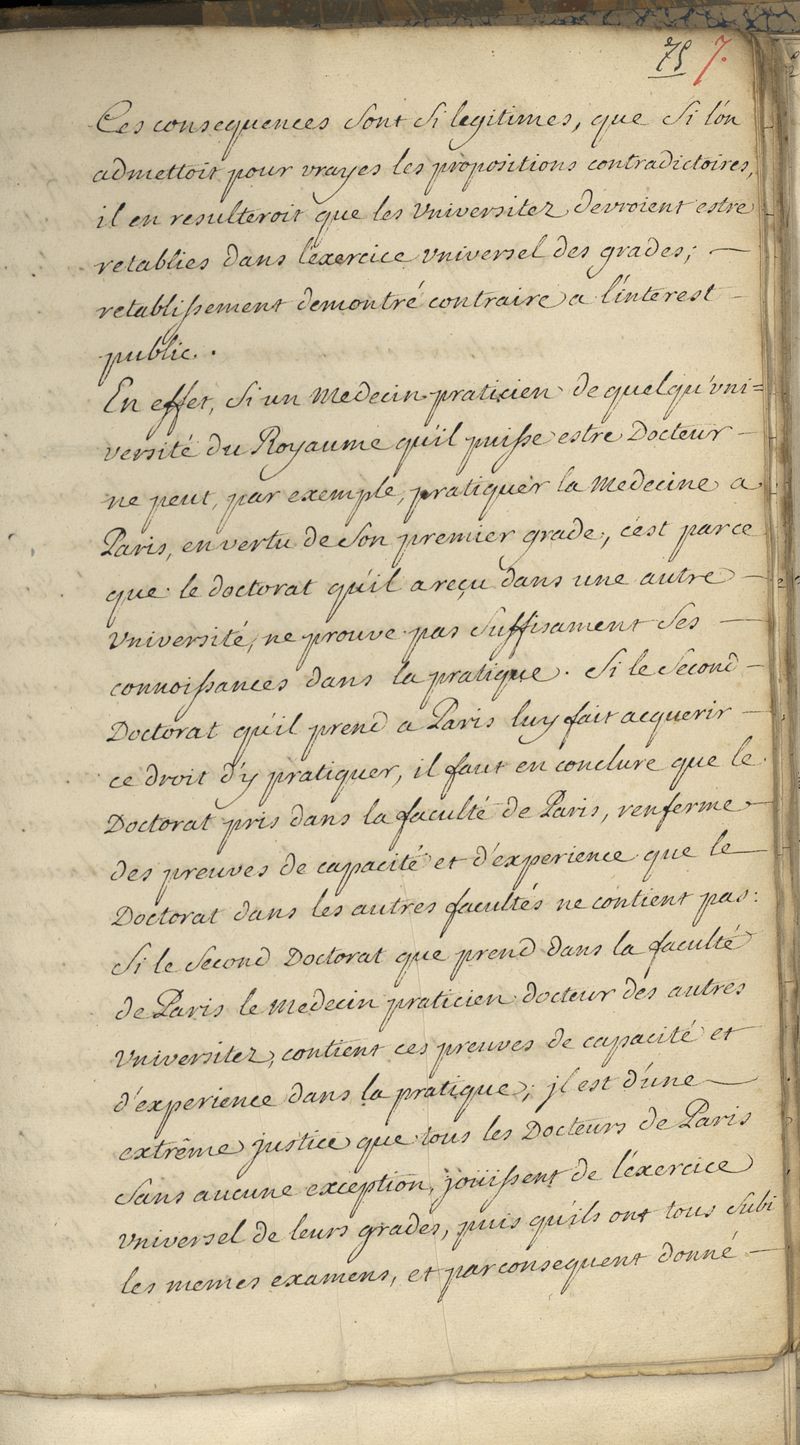 75 7.
Ces consequences sont si legitimes, que si l'on
admettoit pour vrayes les propositions contradictoires,
il en resulteroit que les Universitez devroient estre
retablies dans l'exercice universel des grades; —
retablissement demontré contraire a l'interest —
public. .
En effet, si un Medecin praticien de quelqu'uni=
versité du Royaume qu'il puisse estre Docteur —
ne peut, par exemple, pratiquer la Medecine a
Paris, en vertu de son premier grade, c'est parce
que le doctorat qu'il a reçu dans une autre —
Université, ne prouve pas suffisament ses —
connoissances dans la pratique. Si le second —
Doctorat qu'il prend a Paris luy fait acquerir —
ce droit d'y pratiquer, il faut en conclure que le
Doctorat pris dans la faculté de Paris, renferme —
des preuves de capacité et d'experience que le —
Doctorat dans les autres facultés ne contient pas:
Si le second Doctorat que prend dans la faculté
de Paris le Medecin praticien docteur des autres
Universitez, contient ces preuves de capacité et
d'experience dans la pratique, jl est d'une —
extrême justice que tous les Docteurs de Paris
sans aucune exception, joüissent de l'exercice
universel de leurs grades, puis qu'ils ont tous subi
les memes examens, et par consequent donné —